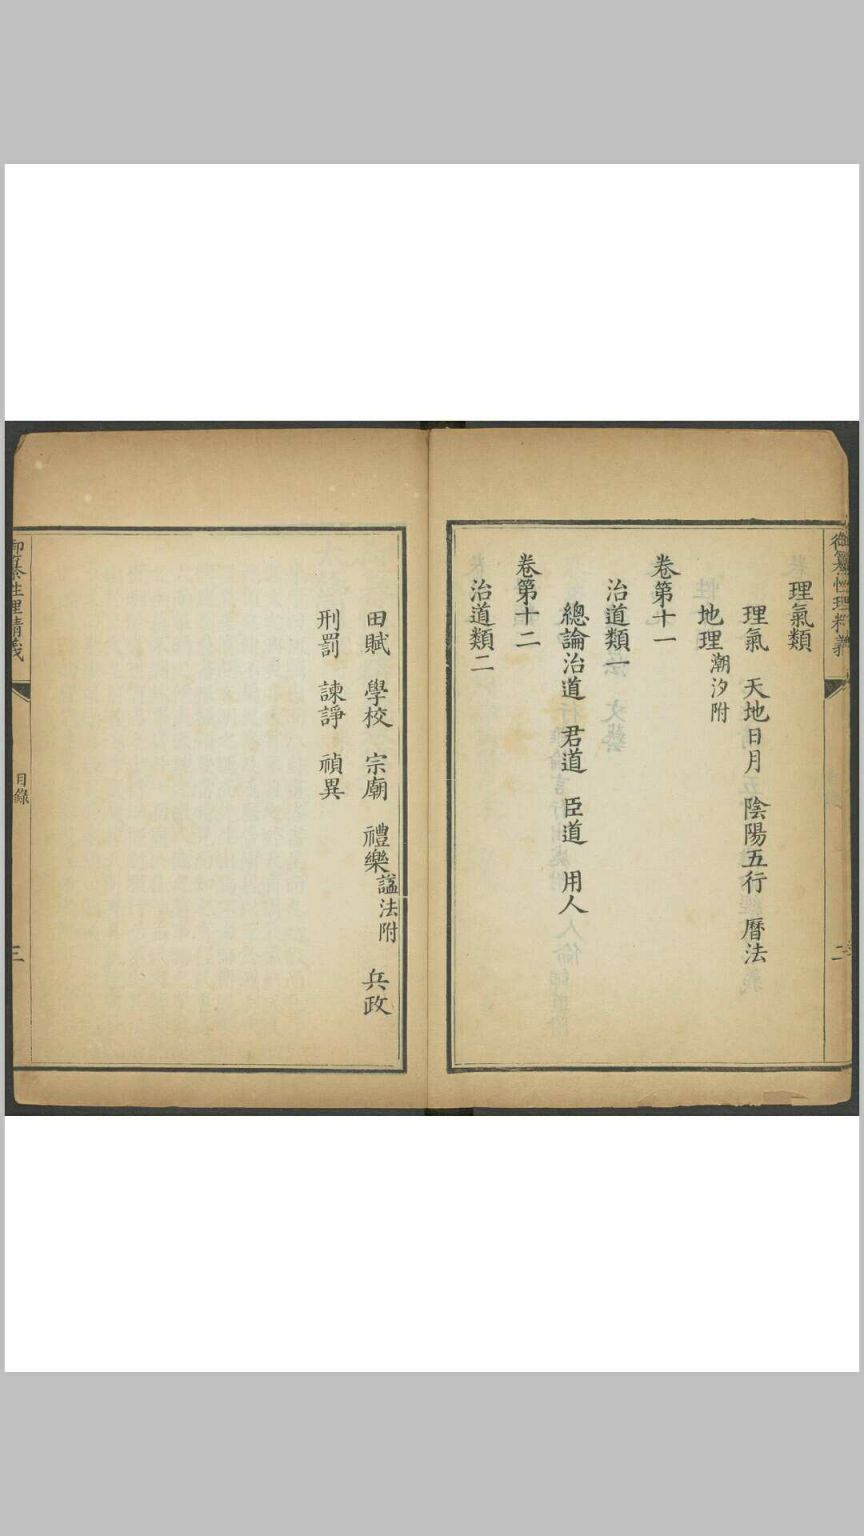 御纂性理精義
二
理氣類
理氣 天地日月 陰陽五行 曆法
地理潮汐附
卷第十一
治道類一
總論治道 君道 臣道 用人
卷第十二
治道類二
田賦 學校 宗廟 禮樂諡法附 兵政
刑罰 諫諍 禎異
御纂性理精義
目錄
三